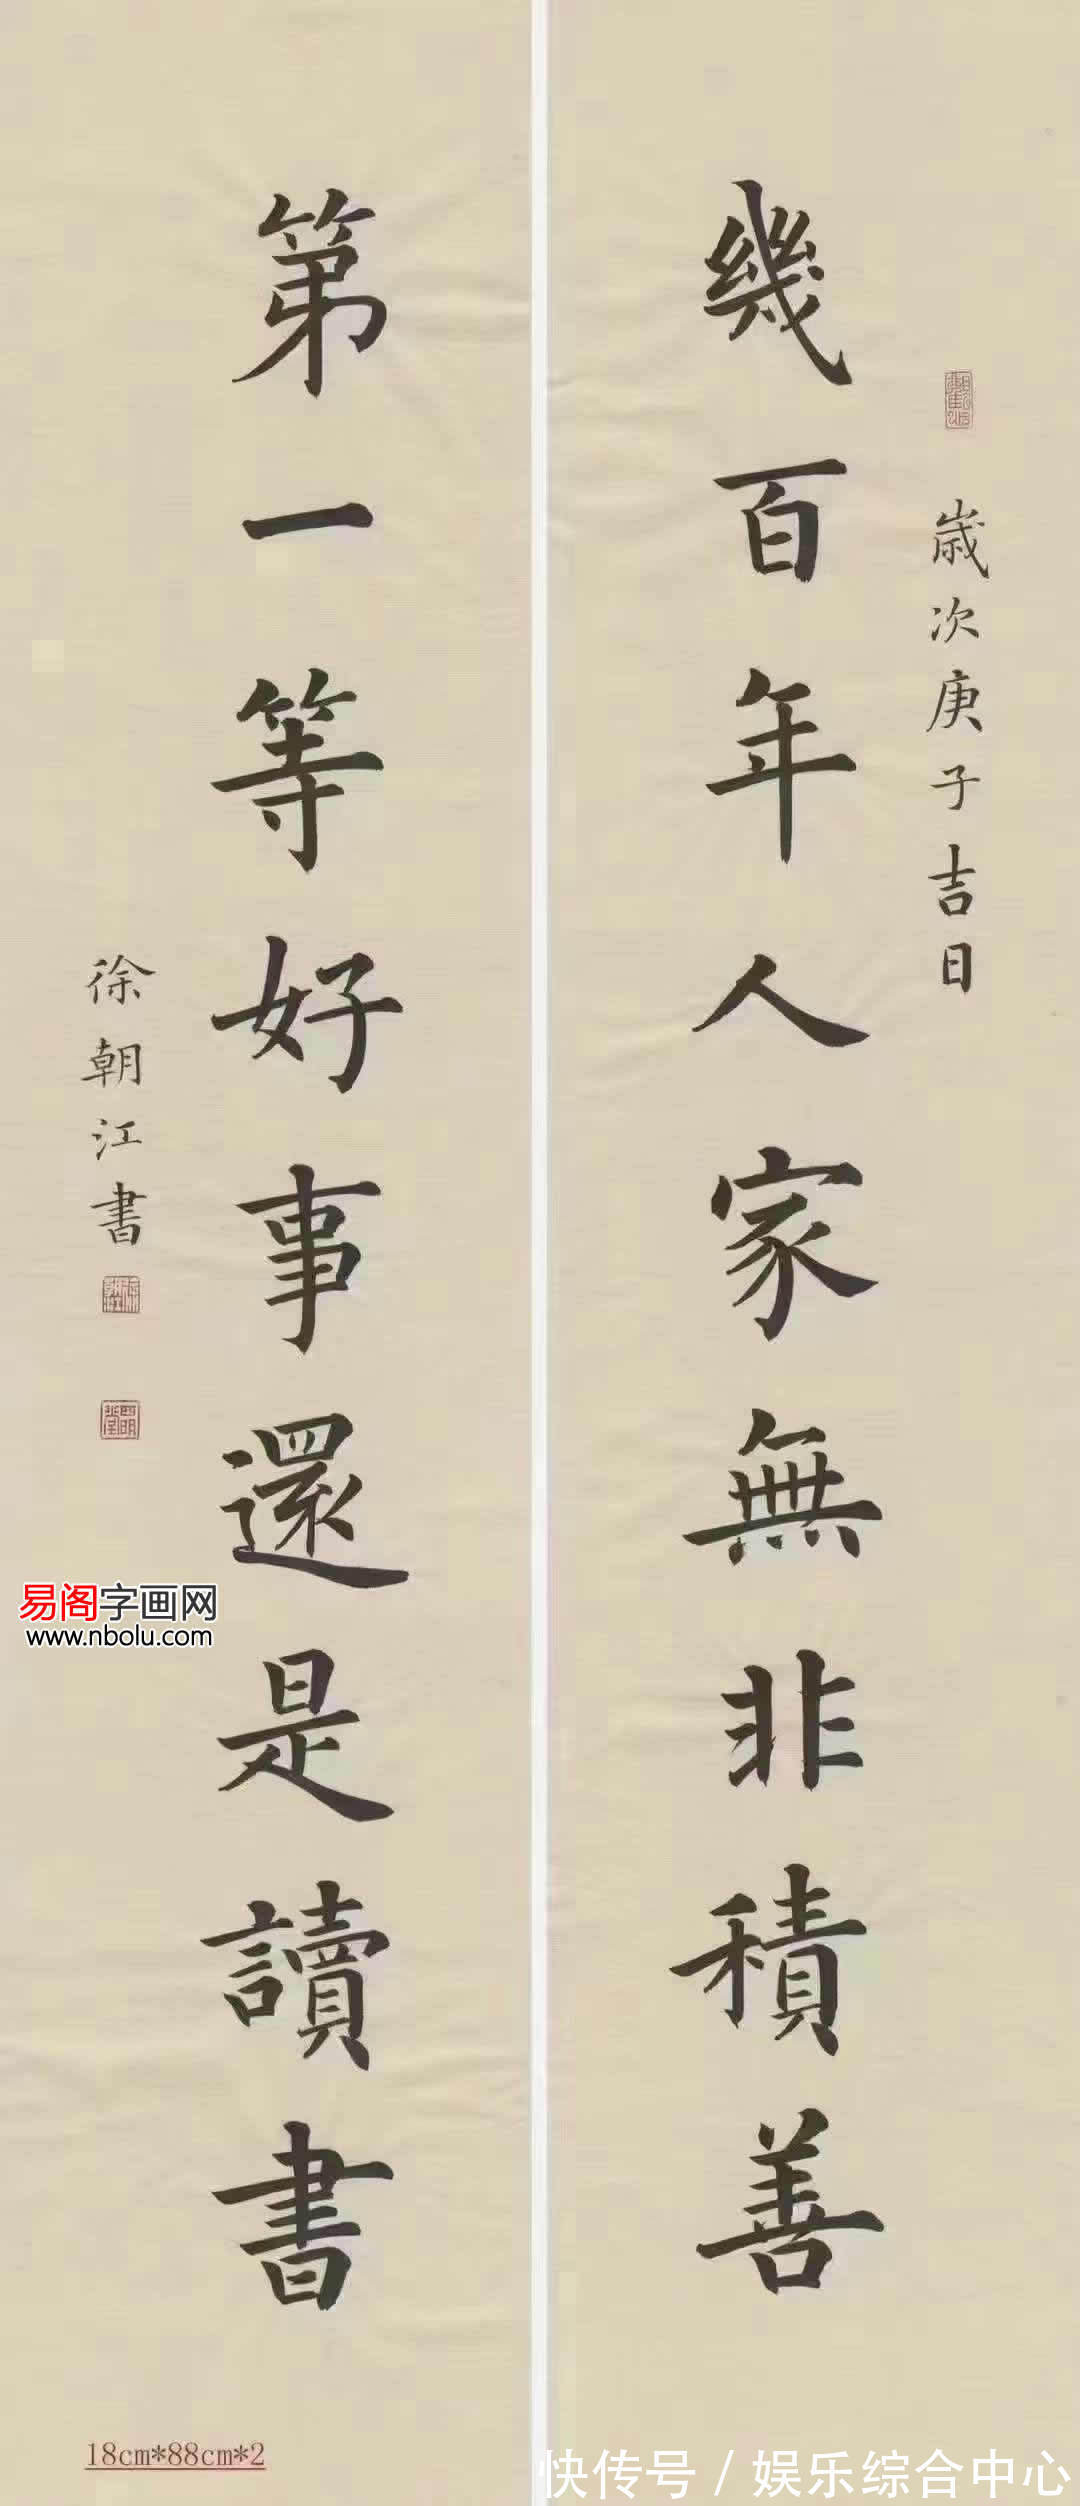 歲次庚子吉日
幾百年人家無非積善
第一等好事還是讀書
徐朝江書
易阁字画网
www.nbolu.com
18cm*88cm*2
快传号 / 娱乐综合中心